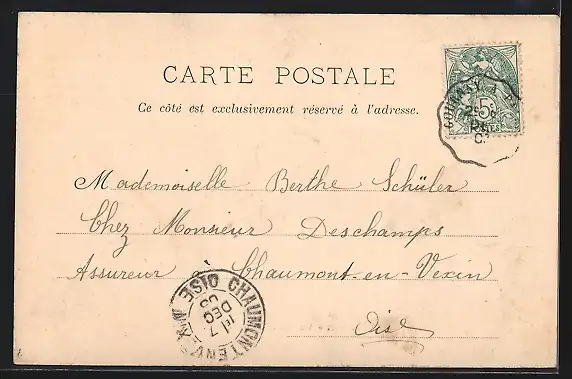 CARTE POSTALE
Ce côté est exclusivement réservé à l'adresse.
5
Mademoiselle Berthe Schüler
Chez Monsieur Deschamps
Assureur à Chaumont-en-Vexin
Oise
CHAUMONT EN VEXIN OISE
DEC